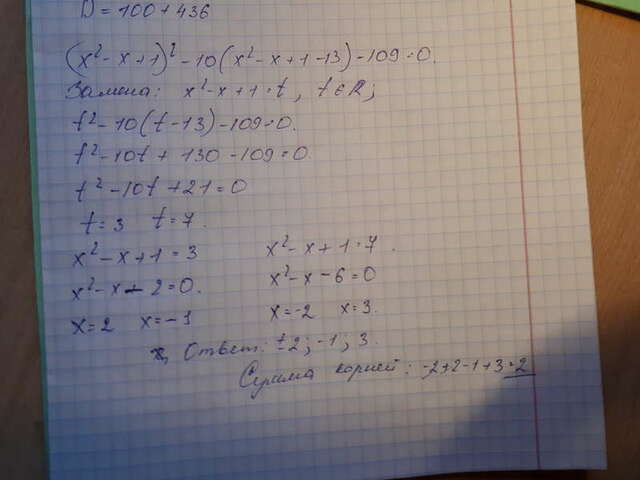 D = 100 + 436
(x² - x + 1)² - 10(x² - x + 1 - 13) - 109 = 0.
Замена: x² - x + 1 = t, t ∈ R;
t² - 10(t - 13) - 109 = 0.
t² - 10t + 130 - 109 = 0.
t² - 10t + 21 = 0
t = 3 t = 7.
x² - x + 1 = 3 x² - x + 1 = 7.
x² - x - 2 = 0. x² - x - 6 = 0
x = 2 x = -1 x = -2 x = 3.
Ответ: ±2; -1; 3.
Сумма корней: -2+2-1+3=2